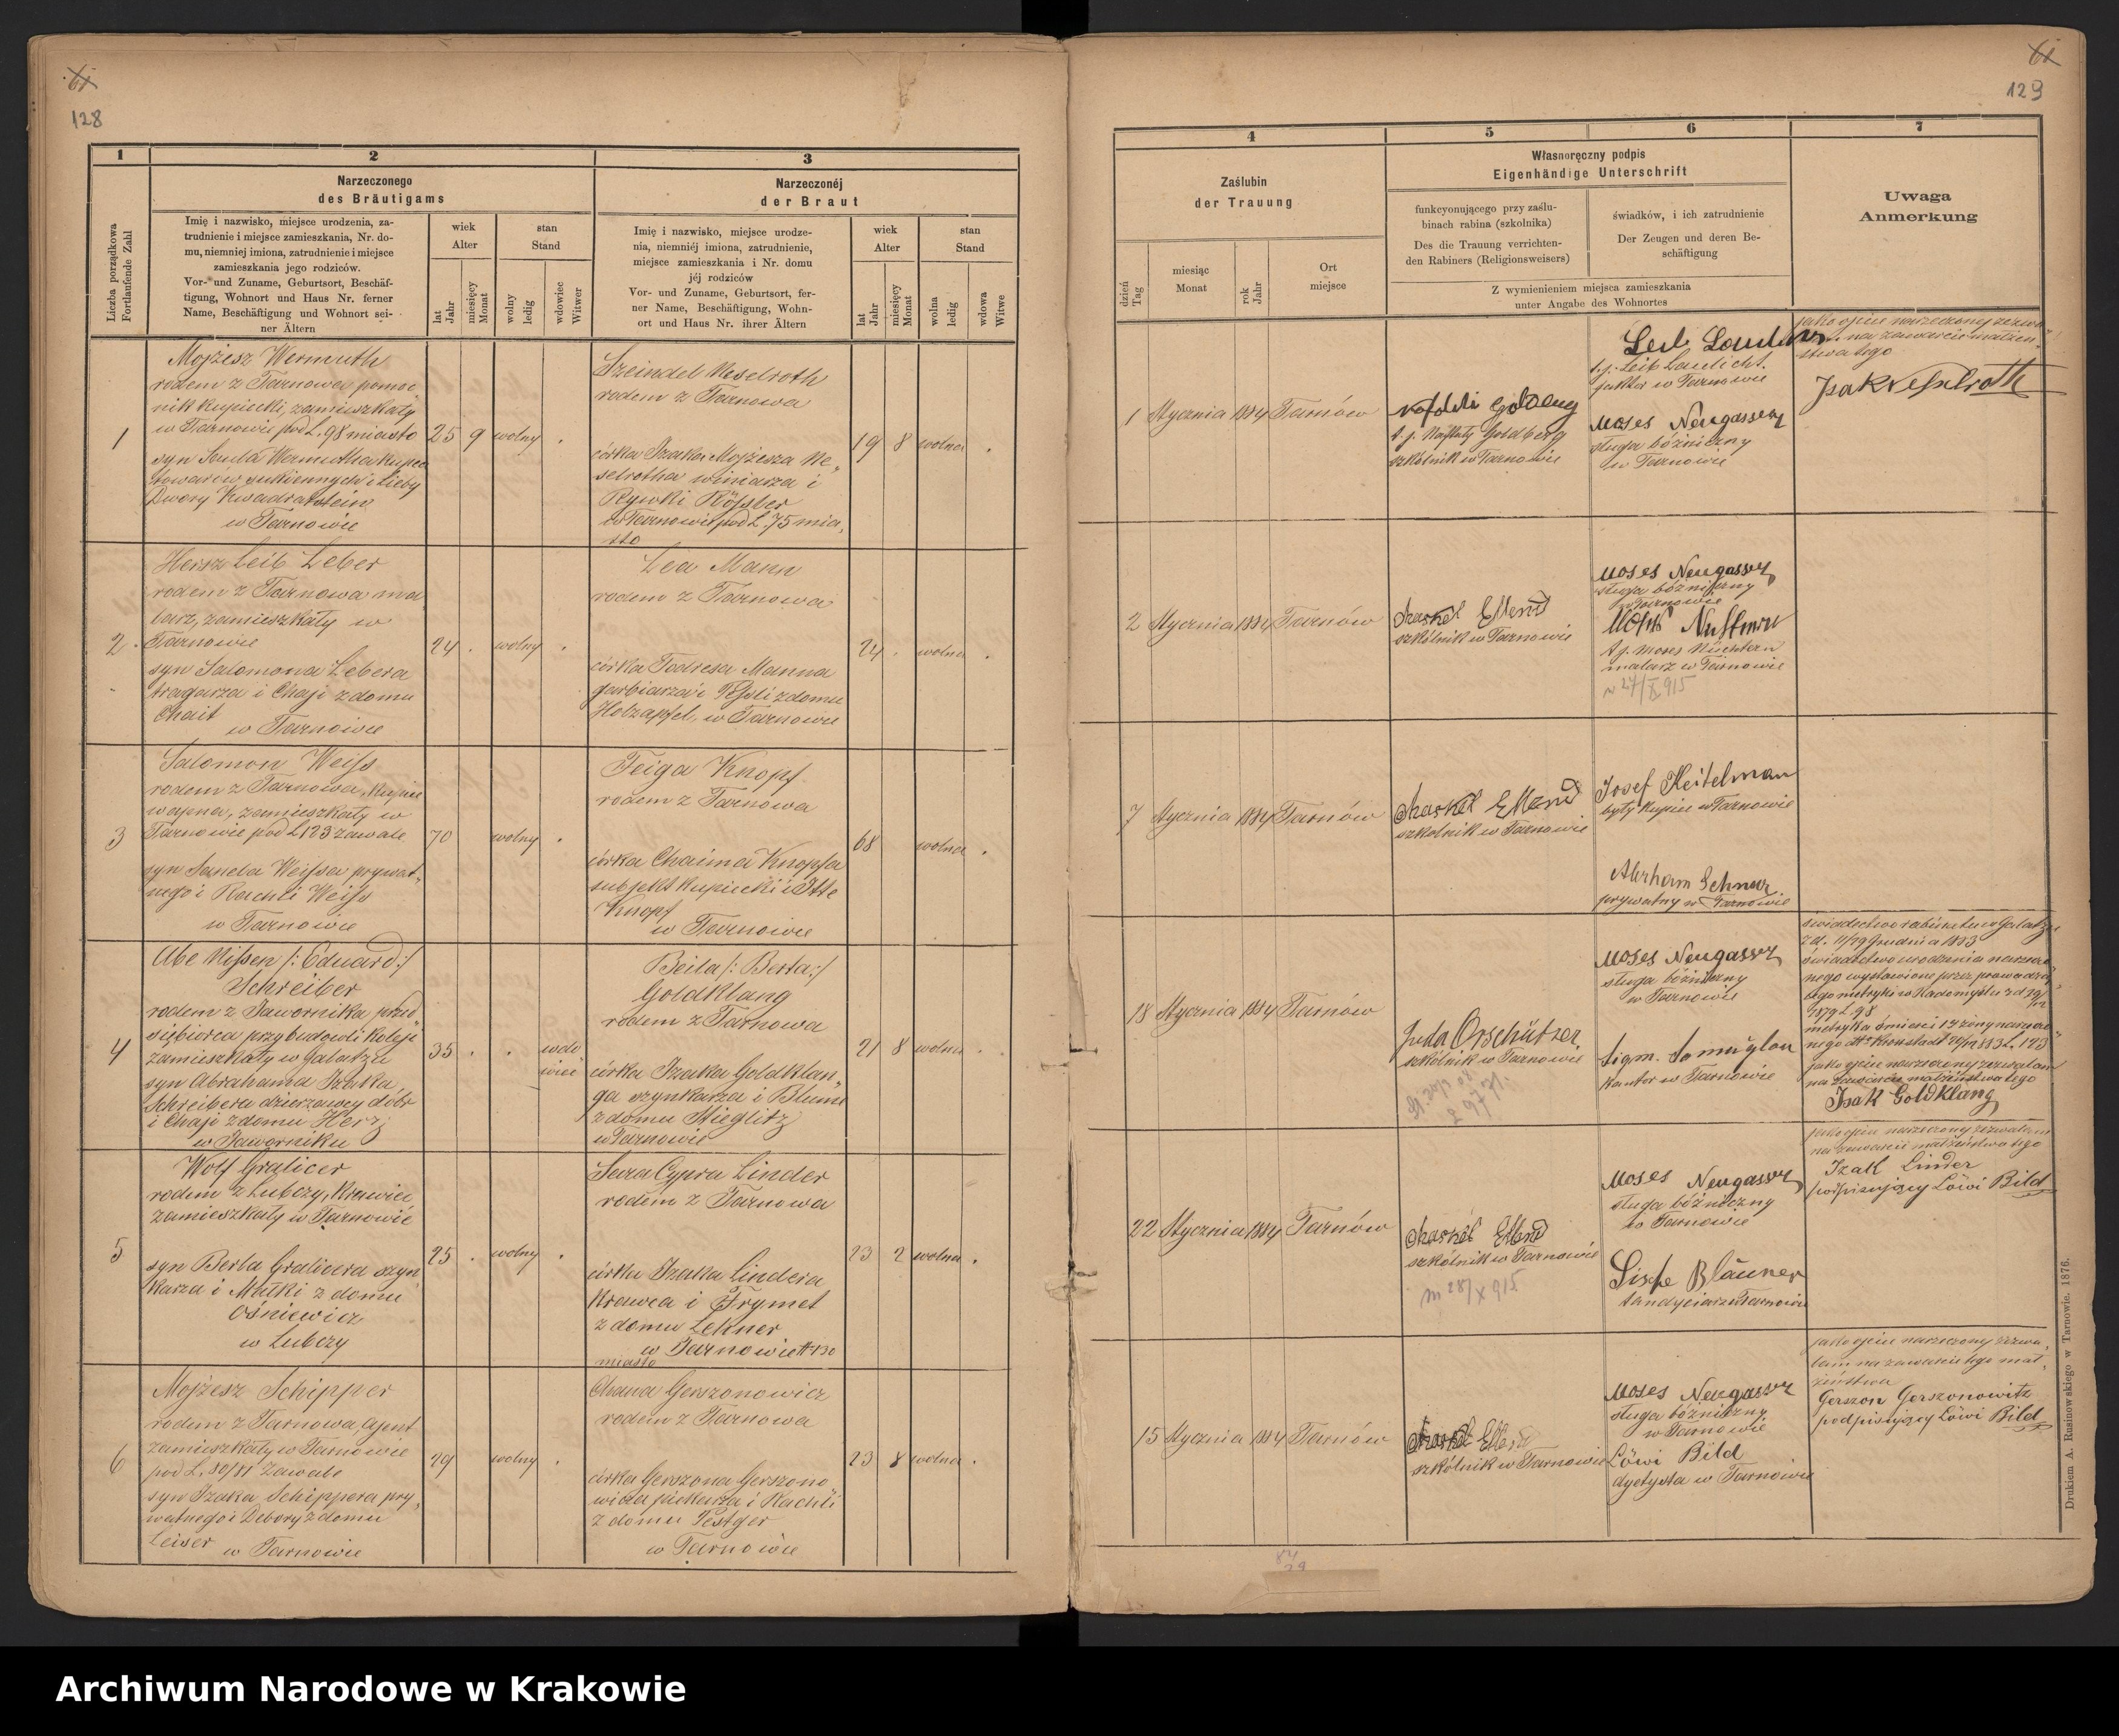 61
128
1
2
3
Narzeczonego
des Bräutigams
Narzeczonéj
der Braut
Liczba porządkowa
Fortlaufende Zahl
Imię i nazwisko, miejsce urodzenia, za-
trudnienie i miejsce zamieszkania, Nr. do-
mu, niemniej imiona, zatrudnienie i miejsce
zamieszkania jego rodziców.
Vor- und Zuname, Geburtsort, Beschäf-
tigung, Wohnort und Haus Nr. ferner
Name, Beschäftigung und Wohnort sei-
ner Ältern
wiek
Alter
lat
Jahr
miesięcy
Monat
stan
Stand
wolny
ledig
wdowiec
Witwer
Imię i nazwisko, miejsce urodze-
nia, niemniéj imiona, zatrudnienie,
miejsce zamieszkania i Nr. domu
jéj rodziców
Vor- und Zuname, Geburtsort, fer-
ner Name, Beschäftigung, Wohn-
ort und Haus Nr. ihrer Ältern
wiek
Alter
lat
Jahr
miesięcy
Monat
stan
Stand
wolna
ledig
wdowa
Witwe
1
Mojżesz Wermuth
rodem z Tarnowa pomoc
nik kupiecki, zamieszkały
w Tarnowie pod L. 98 miasto
syn Saula Wermutha kupca
towarów sukiennych i Lieby
Dwory Kwadratstein
w Tarnowie
25 9 wolny
Szeindel Neselroth
rodem z Tarnowa
córka Izaka Mojżesza Ne„
selrotha winiarza i
Rywki
w Tarnowie pod L. 75 mia„
sto
19 8 wolna
2
Hersz Leib Leber
rodem z Tarnowa ma
larz, zamieszkały w
Tarnowie
syn Salomona Lebera
tragarza i Chaji z domu
Chait
w Tarnowie
24 wolny
Lea Mann
rodem z Tarnowa
córka Todresa Manna
garbiarza i z domu
Holzapfel, w Tarnowie
24 wolna
3
Salomon Weiss
rodem z Tarnowa, kupiec
zamieszkały w
Tarnowie pod L 123 zawale
syn Weissa prywat„
nego i Rachli Weiss
w Tarnowie
70 wolny
Feiga Knopf
rodem z Tarnowa
córka Chaima Knopfa
subjekt kupiecki i Itte
Knopf
w Tarnowie
68 wolna
4
Abe Nissen /: Eduard:/
Schreiber
rodem z Jawornika przed
siębiorca przy budowli koleji
zamieszkały w Galatzu
syn Abrahama Izaka
Schreibera dzierzawcy dóbr
i Chaji z domu Herz
w Jaworniku
35 wdo
wiec
Beila /: Berta:/
Goldklang
rodem z Tarnowa
córka Izaka Goldklan„
ga szynkarza i Blumi
z domu Stieglitz
w Tarnowie
21 8 wolna
5
Wolf Gralicer
rodem z Lubczy, krawiec
zamieszkały w Tarnowie
syn Berla Gralicera szyn
karza i Małki z domu
Ośniewicz
w Lubczy
25 wolny
Sara Cypra Linder
rodem z Tarnowa
córka Izaka Lindera
krawca i Frymet
z domu Lekner
w Tarnowie N 130
miasto
23 2 wolna
6
Mojżesz Schipper
rodem z Tarnowa, agent
zamieszkały w Tarnowie
pod L. 80/81 Zawale
syn Izaka Schippera pry„
watnego i Debory z domu
Leiser w Tarnowie
29 wolny
Chana Gerszonowicz
rodem z Tarnowa
córka Gerszona Gerszono„
wicza piekarza i Rachli
z domu Pestger
w Tarnowie
23 8 wolna
61
129
4
5
6
7
Zaślubin
der Trauung
Własnoręczny podpis
Eigenhändige Unterschrift
Uwaga
Anmerkung
dzień
Tag
miesiąc
Monat
rok
Jahr
Ort
miejsce
funkcyonującego przy zaślu-
binach rabina (szkolnika)
Des die Trauung verrichten-
den Rabiners (Religionsweisers)
świadków, i ich zatrudnienie
Der Zeugen und deren Be-
schäftigung
Z wymienieniem miejsca zamieszkania
unter Angabe des Wohnortes
1 Stycznia 1884 Tarnów
t. j. Naftaly Goldberg
szkólnik w Tarnowie
t. j. Leib Laulicht
faktor w Tarnowie
Moses Neugasser
sługa bóżniczny
w Tarnowie
jako ojciec narzeczonej zezwa„
na zawarcie małżeń„
stwa tego
Isak Nesselroth
2 Stycznia 1884 Tarnów
szkólnik w Tarnowie
Moses Neugasser
sługa bóżniczny
w Tarnowie
t. j. Moses Nüchtern
malarz w Tarnowie
7 Stycznia 1884 Tarnów
szkolnik w Tarnowie
Josef Keitelman
były kupiec w Tarnowie
Abrham Schnur
prywatny w Tarnowie
18 Stycznia 1884 Tarnów
Juda Orschützer
szkólnik w Tarnowie
Moses Neugasser
sługa bóżniczny
w Tarnowie
kantor w Tarnowie
świadectwo rabinatu w Galatzu
z d. 11/29 Grudnia 1883
świadectwo urodzenia narzeczo„
nego wystawione przez prowadzą„
cego metryki w Radomyślu z d 29/
1879 L 98
metryka śmierci 1 żony narzeczo„
nego
jako ojciec narzeczonej zezwalam
na zawarcie małżeństwa tego
Isak Goldklang
22 Stycznia 1884 Tarnów
szkólnik w Tarnowie
Moses Neugasser
sługa bóżniczny
w Tarnowie
Süsse Bläuner
tandyciarz w Tarnowie
jako ojciec narzeczonej zezwalam
na zawarcie małżeństwa tego
Izak Linder
podpisujący Löwi Bild
15 Stycznia 1884 Tarnów
szkólnik w Tarnowie
Moses Neugasser
sługa bóżniczny
w Tarnowie
Löwi Bild
w Tarnowie
jako ojciec narzeczonej zezwa„
lam na zawarcie tego mał„
żeństwa
Gerszon Gerszonowitz
podpisujący Löwi Bild
Drukiem A. Rusinowskiego w Tarnowie. 1876.
Archiwum Narodowe w Krakowie